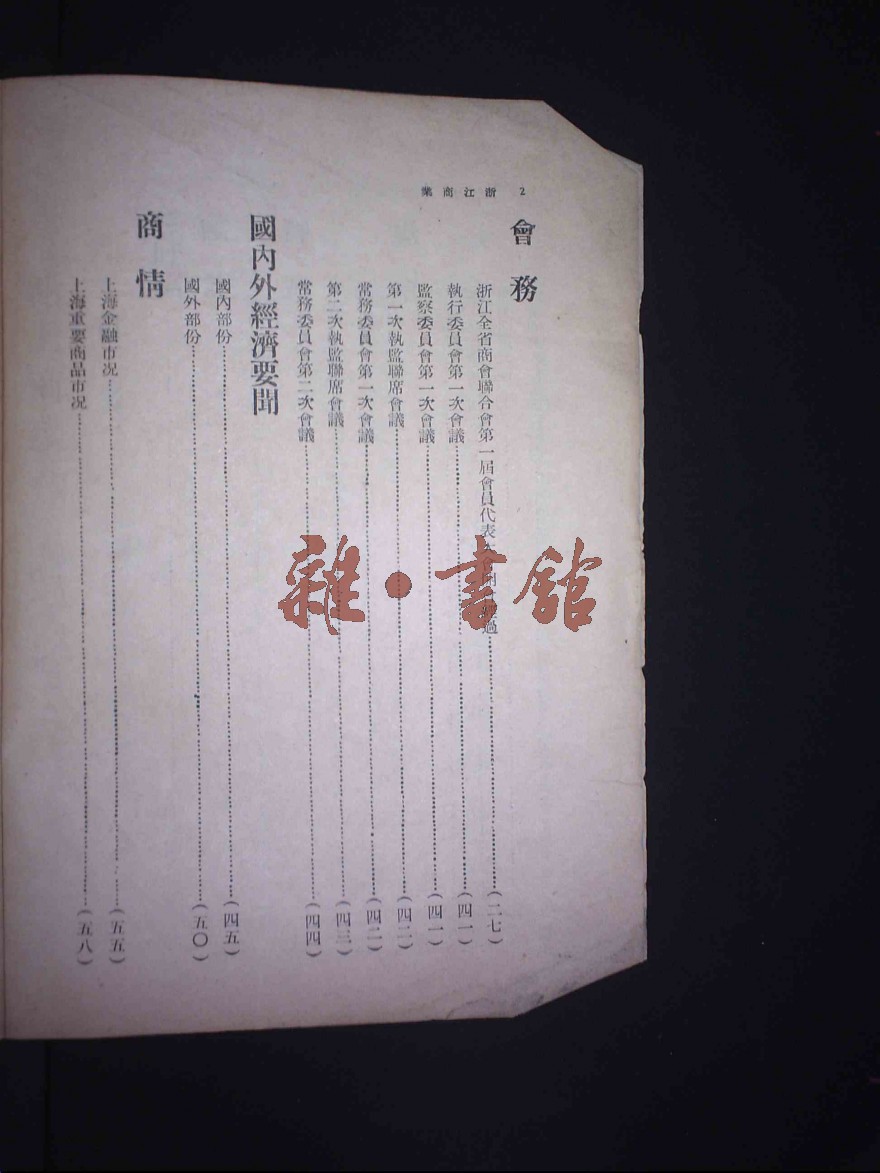 2 浙江商業
會務
浙江全省商會聯合會第一屆會員代表過……(二七)
執行委員會第一次會議……(四一)
監察委員會第一次會議……(四一)
第一次執監聯席會議……(四二)
常務委員會第一次會議……(四二)
第二次執監聯席會議……(四三)
常務委員會第二次會議……(四四)
國內外經濟要聞
國內部份……(四五)
國外部份……(五〇)
商情
上海金融市况……(五五)
上海重要商品市况……(五八)
雜·書館